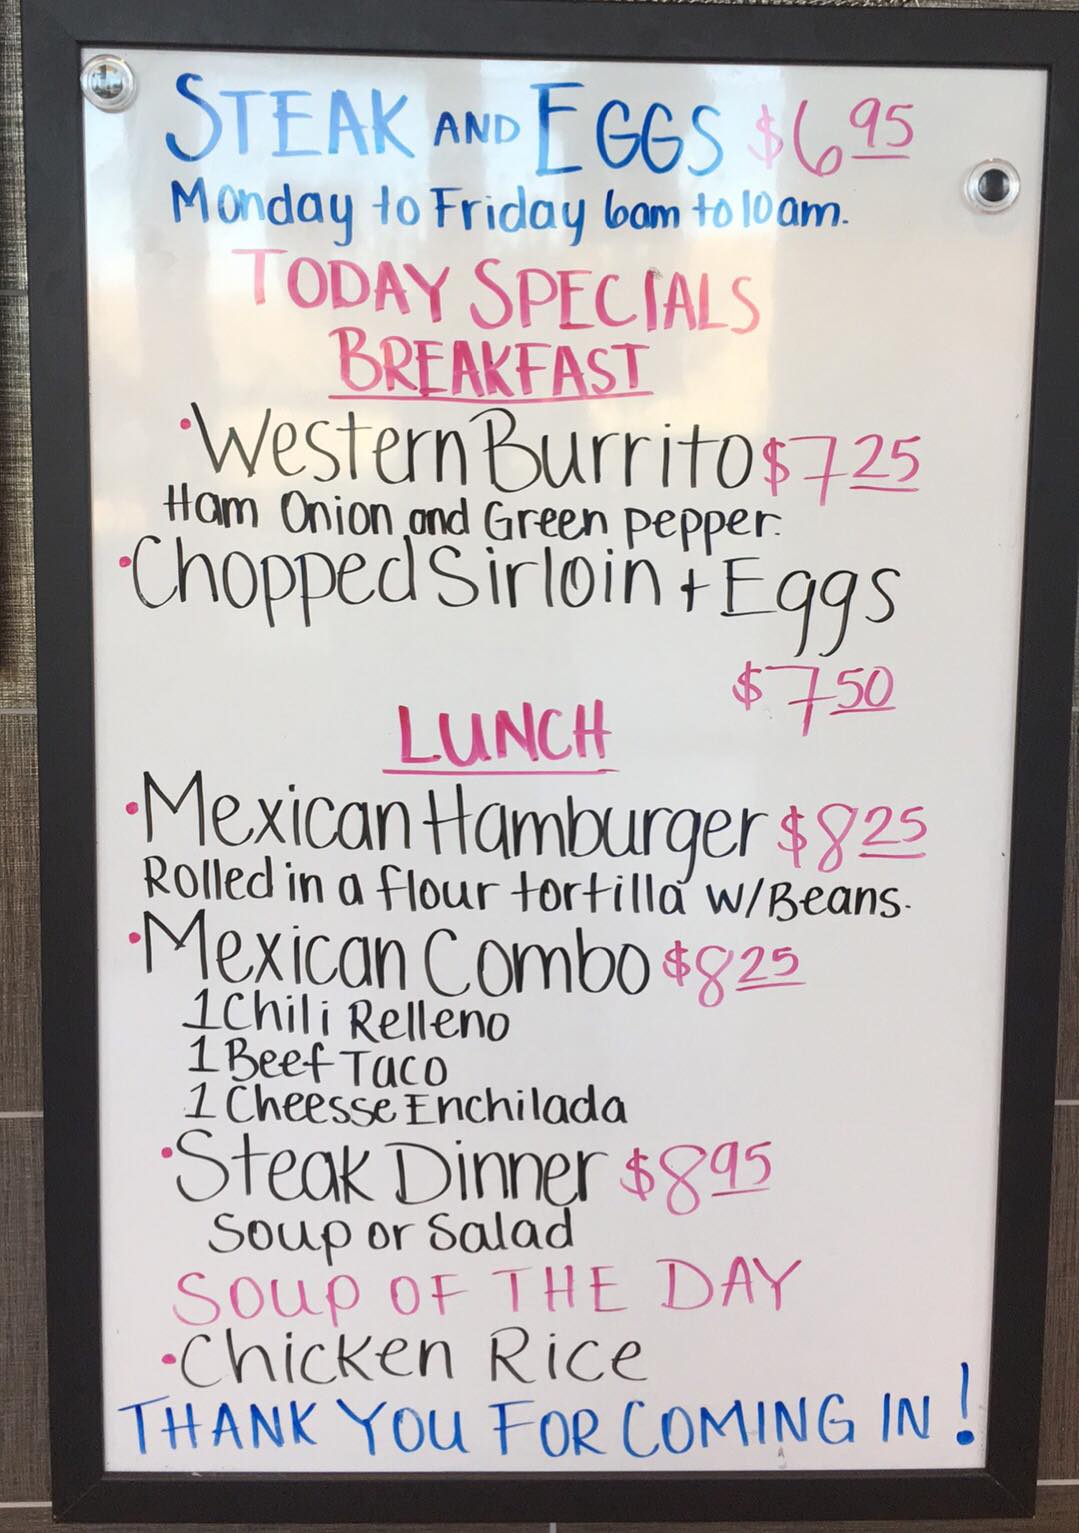 STEAK AND EGGS $6 95
Monday to Friday 6am to 10am.
TODAY SPECIALS
BREAKFAST
•Western Burrito $7 25
Ham Onion and Green pepper.
•Chopped Sirloin + Eggs
$7 50
LUNCH
•Mexican Hamburger $8 25
Rolled in a flour tortilla w/Beans.
•Mexican Combo $8 25
1 Chili Relleno
1 Beef Taco
1 Cheesse Enchilada
•Steak Dinner $8 95
Soup or Salad
SOUP OF THE DAY
•Chicken Rice
THANK YOU FOR COMING IN!